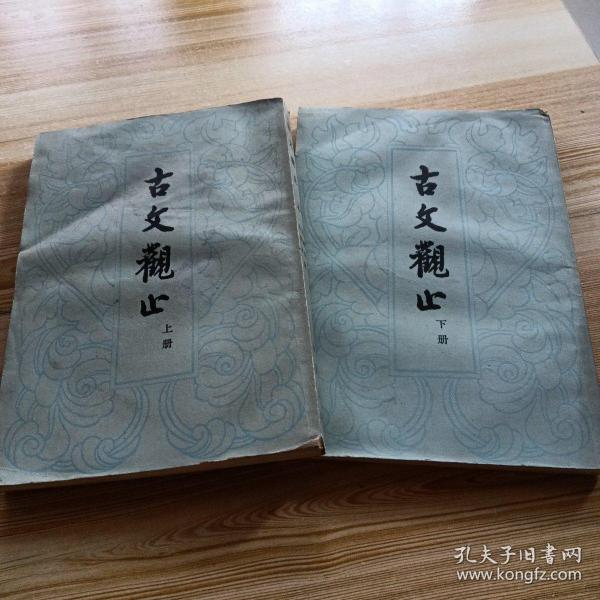 古文觀止
上册
古文觀止
下册
孔夫子旧书网
www.kongfz.com